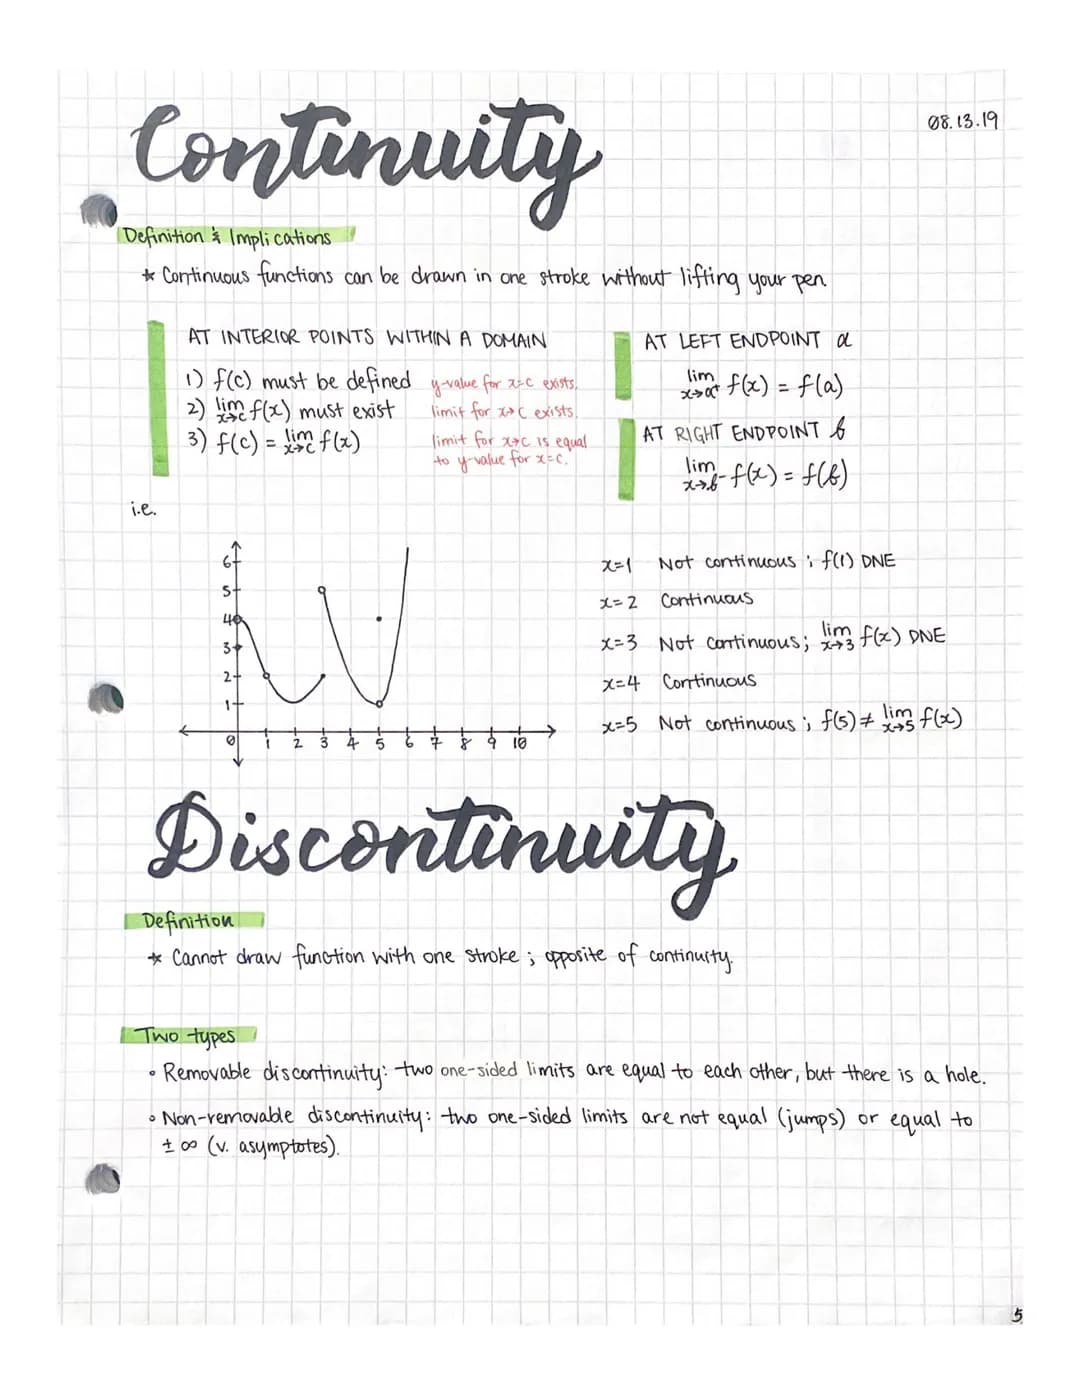 Continuity
08.13.19
Definition & Implications
* Continuous functions can be drawn in one stroke without lifting your pen.
AT INTERIOR POINTS WITHIN A DOMAIN
1) f(c) must be defined y-value for x=c exists.
2) lim x→c f(x) must exist limit for x→c exists.
3) f(c) = lim x→c f(x) limit for x→c is equal
to y-value for x=c.
AT LEFT ENDPOINT a
lim x→a⁺ f(x) = f(a)
AT RIGHT ENDPOINT b
lim x→b⁻ f(x) = f(b)
i.e.
6
5
4
3
2
1
0 1 2 3 4 5 6 7 8 9 10
x=1 Not continuous ; f(1) DNE
x=2 Continuous
x=3 Not continuous; lim x→3 f(x) DNE
x=4 Continuous
x=5 Not continuous ; f(5) ≠ lim x→5 f(x)
Discontinuity
Definition
* Cannot draw function with one stroke ; opposite of continuity.
Two types
• Removable discontinuity: two one-sided limits are equal to each other, but there is a hole.
• Non-removable discontinuity: two one-sided limits are not equal (jumps) or equal to
± ∞ (v. asymptotes).
5